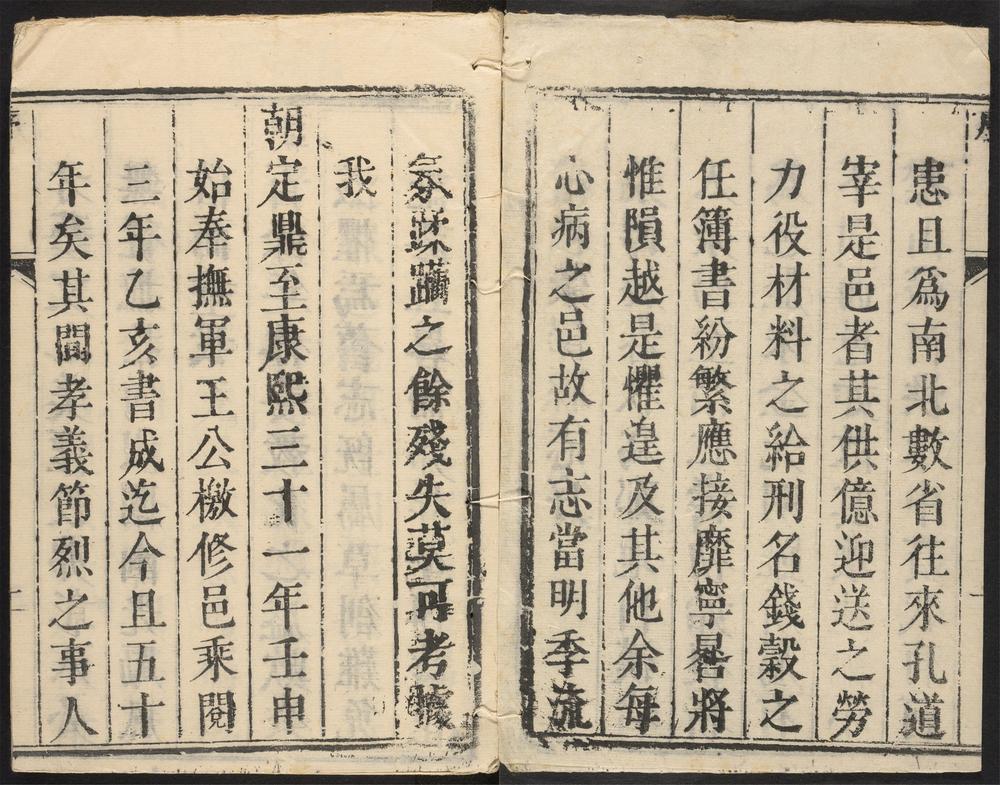 患且爲南北數省往來孔道
宰是邑者其供億迎送之勞
力役材料之給刑名錢穀之
任簿書紛繁應接靡寧晷將
惟隕越是懼遑及其他余每
心病之邑故有志當明季流
氛蹂躪之餘殘失莫可考據
我
朝定鼎至康熙三十一年壬申
始奉撫軍王公檄修邑乘閱
三年乙亥書成迄今且五十
年矣其間孝義節烈之事人